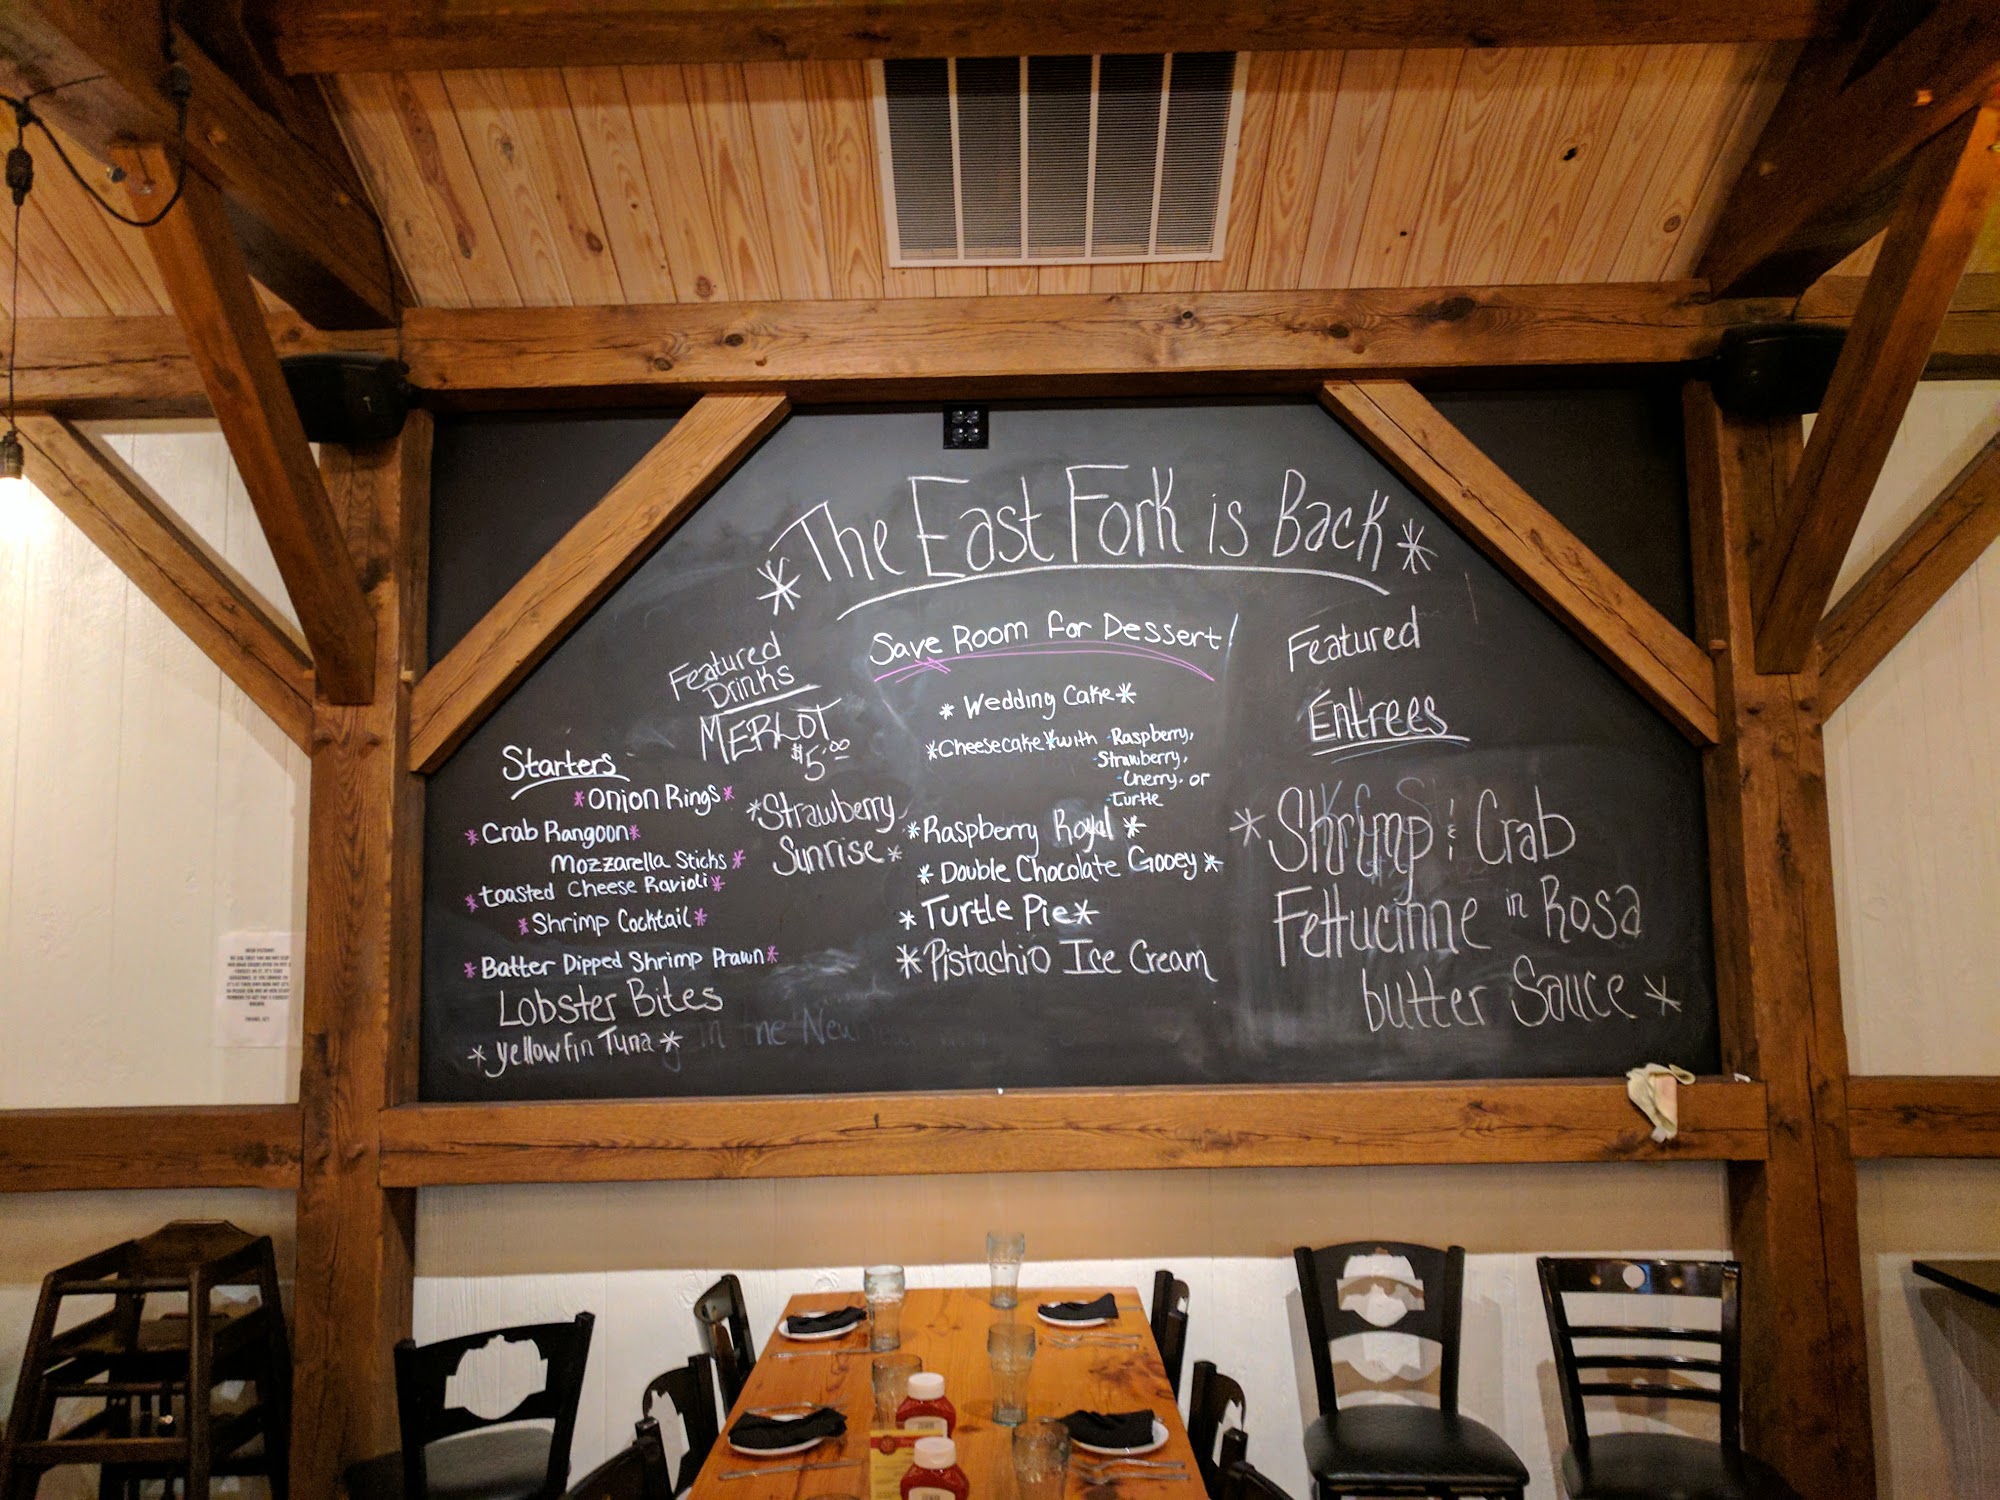 *The East Fork is Back*
Featured
Drinks
MERLOT
$5.00
*Strawberry
Sunrise*
Starters
*Onion Rings*
*Crab Rangoon*
Mozzarella Sticks*
*toasted Cheese Ravioli*
*Shrimp Cocktail*
*Batter Dipped Shrimp Prawn*
Lobster Bites
*yellowfin Tuna*
in the New
Save Room for Dessert!
*Wedding Cake*
*Cheesecake*with -Raspberry,
-Strawberry,
-Cherry, or
-Turtle
*Raspberry Royal*
*Double Chocolate Gooey*
*Turtle Pie*
*Pistachio Ice Cream
Featured
Entrees
*Shrimp & Crab
Fettucinne in Rosa
butter Sauce*